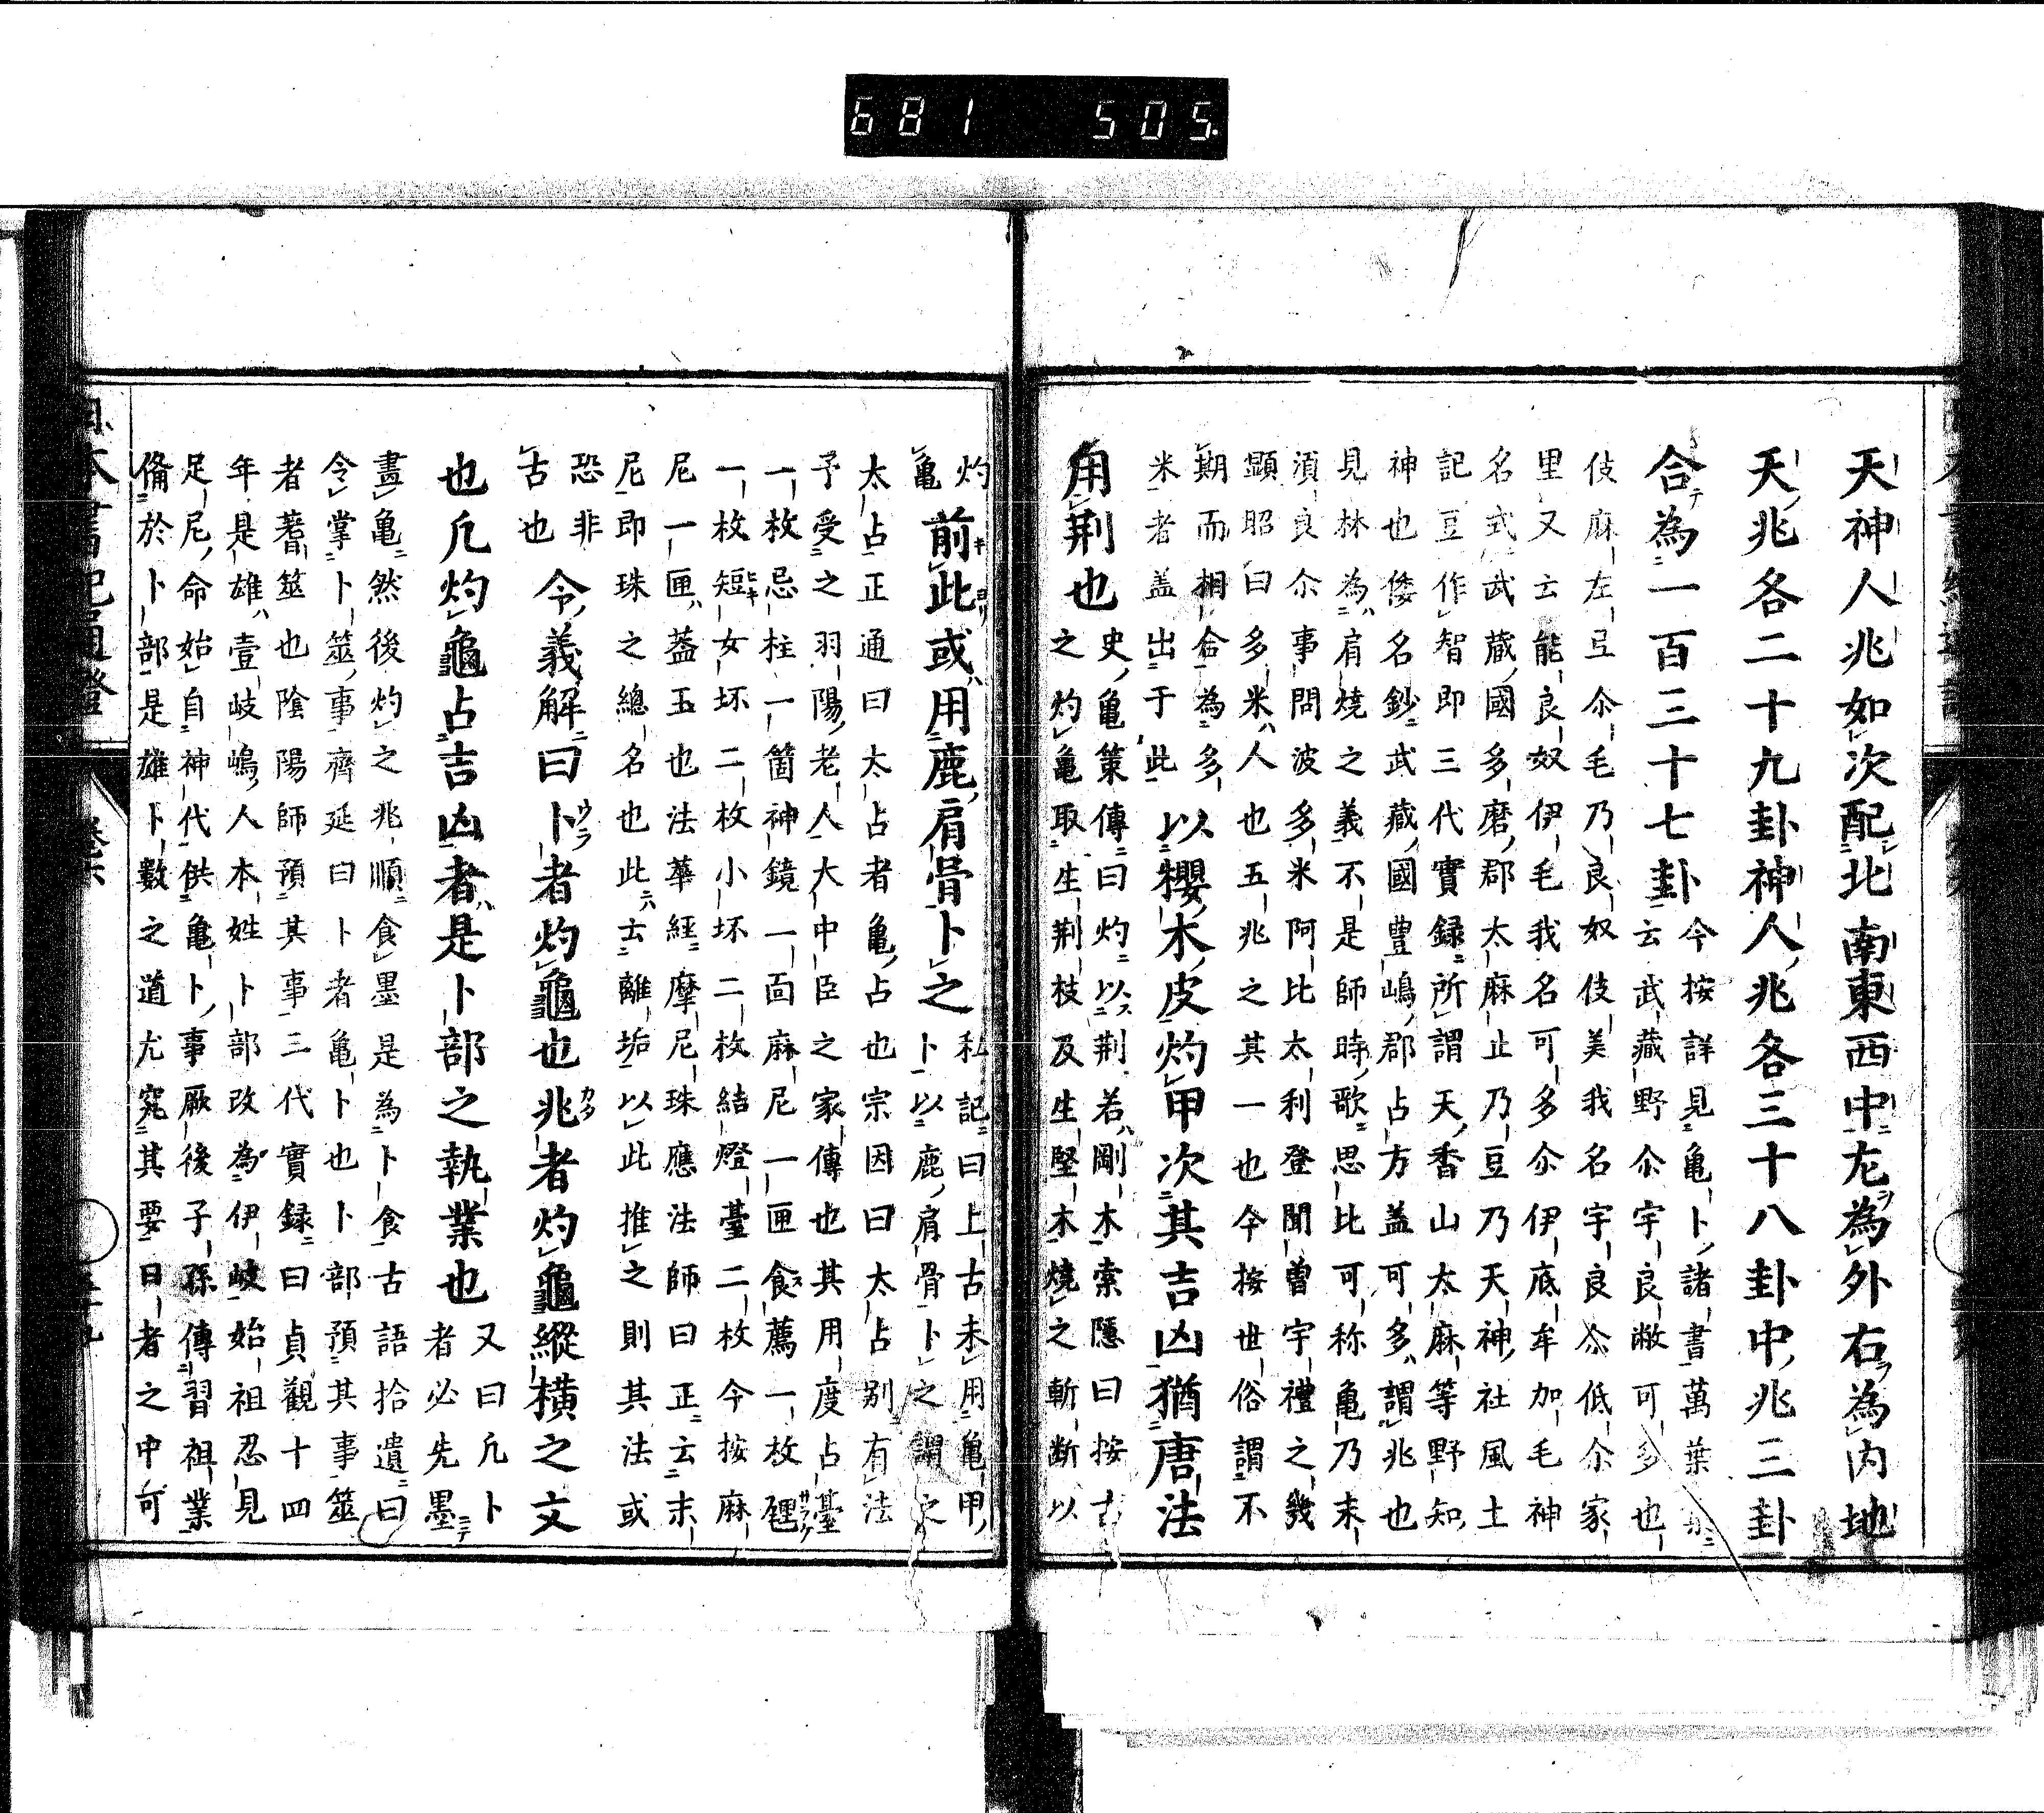 681 505.
天神人兆如次配北南東西中左為外右為内地
天兆各二十九卦神人兆各三十八卦中兆三卦
合為一百三十七卦
今按詳見亀卜諸書萬葉
云武蔵野尒宇良敝可多也
伎麻左弖尒毛乃良奴伎美我名宇良尒低尒家
里又云能良奴伊毛我名可多尒伊底牟加毛神
名式武蔵國多磨郡太麻止乃豆乃天神社風土
記豆作智即三代實録所謂天香山太麻等野知
神也倭名鈔武蔵國豊嶋郡占方盖可多謂兆也
見林為肩燒之義不是師時歌思比可称亀乃末
湏良尒事問波多米阿比太利登聞曽宇禮之幾
顕昭曰多米人也五兆之其一也今按世俗謂不
期而相合為多
米者盖出于此
以櫻木皮灼甲次其吉凶猶唐法
用荆也
史亀策傳曰灼以荆若剛木索隠曰按古
之灼亀取生荆枝及生堅木燒之斬断以
灼
亀
前此或用鹿肩骨卜之
私記曰上古未用亀甲
卜以鹿肩骨卜之謂之
太占正通曰太占者亀占也宗因曰太占别有法
予受之羽陽老人大中臣之家傳也其用度占臺
一枚忌柱一箇神鏡一面麻尼一匣食薦一枚𤭖
一枚短女坏二枚小坏二枚結燈臺二枚今按麻
尼一匣葢玉也法華經摩尼珠應法師曰正云末
尼即珠之總名也此云離垢以此推之則其法或
恐非
古也
令義解曰卜者灼龜也兆者灼龜縱横之文
也凢灼龜占吉凶者是卜部之執業也
又曰凢卜
者必先墨
畫亀然後灼之兆順食墨是為卜食古語拾遺曰
令掌卜筮事齊延曰卜者亀卜也卜部預其事筮
者蓍筮也陰陽師預其事三代實録曰貞觀十四
年是雄壹岐嶋人本姓卜部改為伊岐始祖忍見
足尼命始自神代供亀卜事厥後子孫傳習祖業
備於卜部是雄卜數之道尤究其要日者之中可